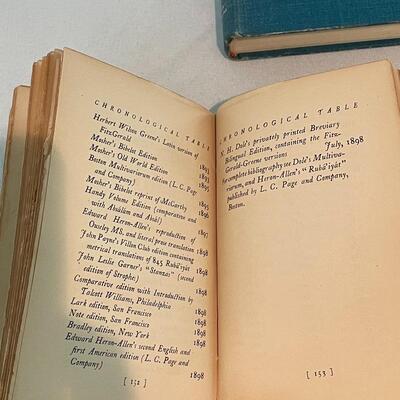 CHRONOLOGICAL TABLE
Herbert Wilson Greene's Latin version of
FitzGerald 1893
Mosher's Bibelot Edition 1893
Mosher's Old World Edition 1895
Boston Multivariorum edition (L. C. Page
and Company) 1896
Mosher's Bibelot reprint of McCarthy
Handy Volume Edition (comparative and
with Absálám and Abál)
Edward Heron-Allen's reproduction of
Ouseley MS. and literal prose translation 1898
John Payne's Villon Club edition containing
metrical translations of 845 Rubá'iyát 1898
John Leslie Garner's "Stanzas" (second
edition of Strophes) 1898
Comparative edition with Introduction by
Talcott Williams, Philadelphia 1898
Lark edition, San Francisco 1898
Note edition, San Francisco 1898
Bradley edition, New York 1898
Edward Heron-Allen's second English and
first American edition (L. C. Page and
Company) 1898
[ 152 ]
CHRONOLOGICAL TABLE
N. H. Dole's privately printed Breviary
Bilingual Edition, containing the Fitz-
Gerald-Greene versions July, 1898
For complete bibliography see Dole's Multiva-
riorum, and Heron-Allen's "Rubá'iyát"
published by L. C. Page and Company,
Boston.
[ 153 ]